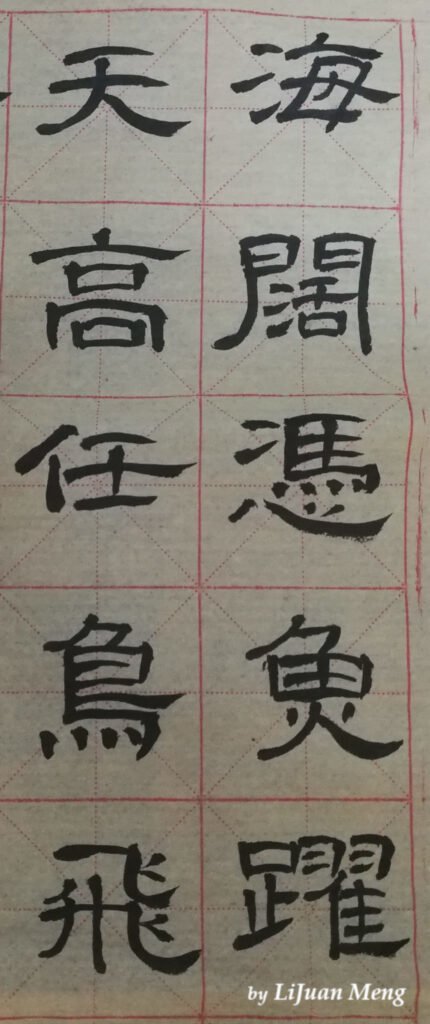 海闊憑魚躍
天高任鳥飛
by LiJuan Meng